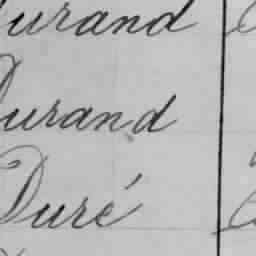 Durand
Durand
Duré